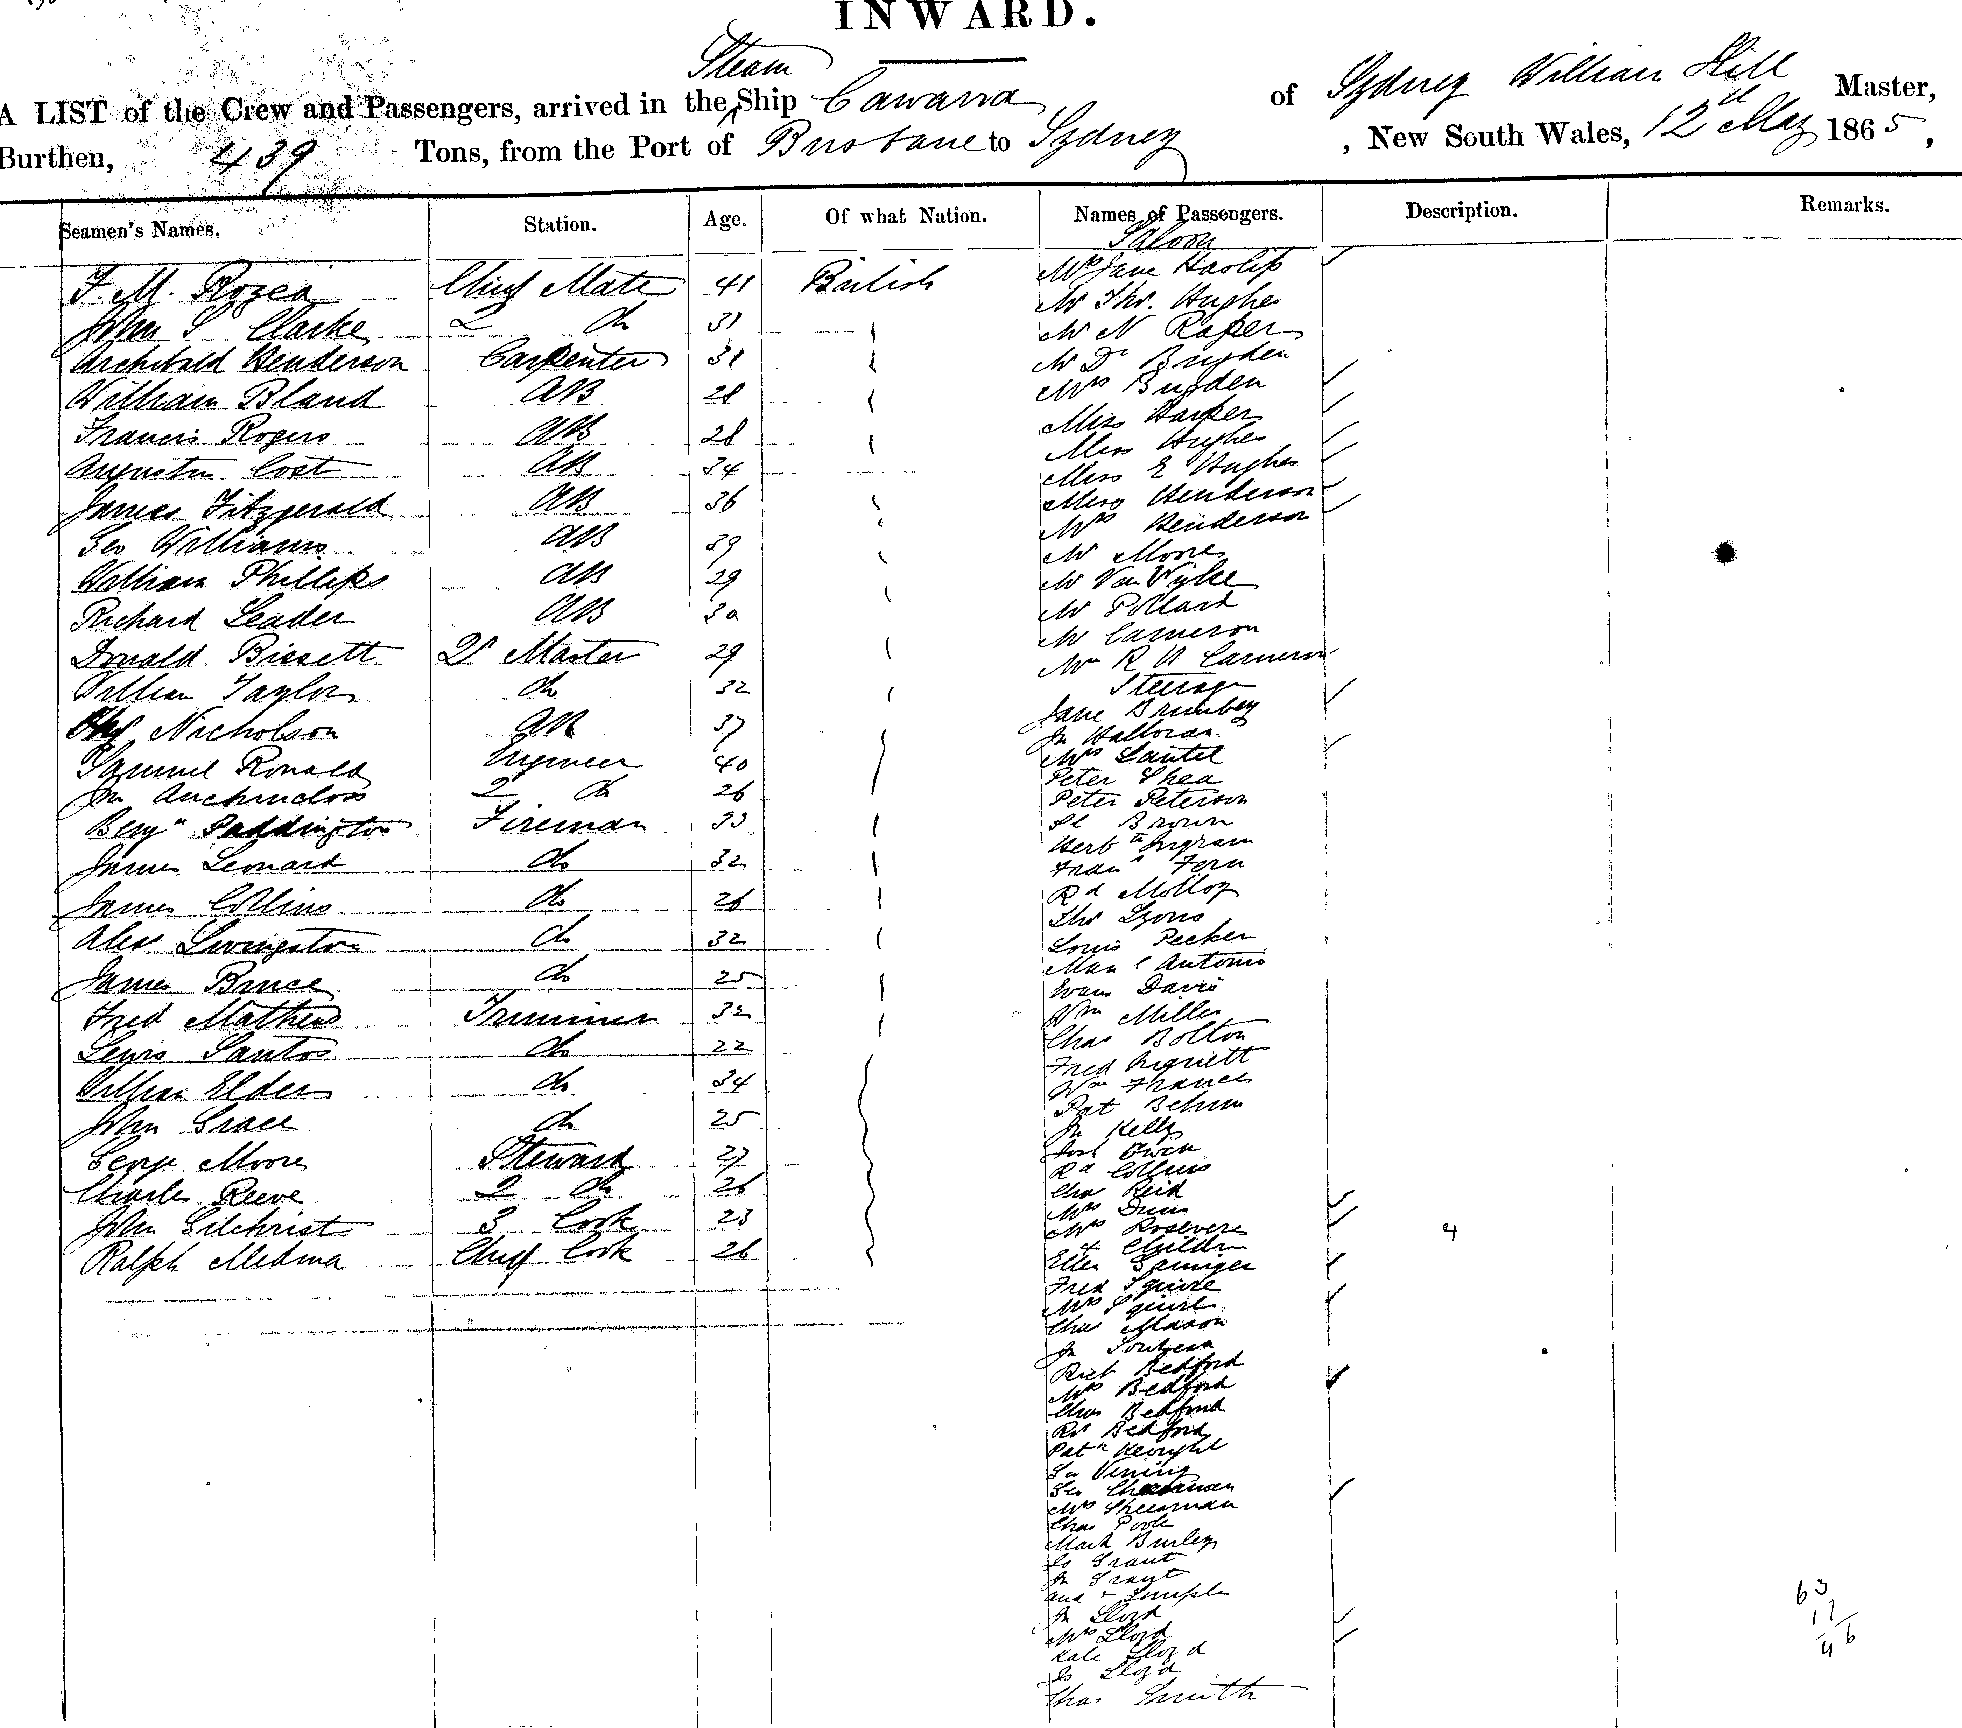 INWARD.
Steam
A LIST of the Crew and Passengers, arrived in the Ship Cawarra of Sydney William Hill Master,
Burthen, 439 Tons, from the Port of Brisbane to Sydney, New South Wales, 12th May 1865,
Seamen's Names. Station. Age. Of what Nation. Names of Passengers. Description. Remarks.
Saloon
F. M. Rozea Chief Mate 41 British
John S Clarke 2 do 31
Archibald Henderson Carpenter 31
William Bland AB 28
Francis Rogers AB 28
Augustin Cost AB 34
James Fitzgerald AB 36
Geo Williams AB 39
William Phillips AB 29
Richard Leader AB 30
Donald Bissett Qr Master 29
William Taylor do 32
Nicholson AB 37
Samuel Ronald Engineer 40
Jn Auchincloss 2 do 26
Benjn Paddington Fireman 33
James Leonard do 32
James Collins do 26
Alexr Livingston do 32
James Bruce do 25
Fred Mathews Trimmer 32
Lewis Santos do 22
William Elder do 34
John Grace do 25
George Moore Steward 27
Charles Reeve 2 do 26
John Gilchrist 3 Cook 23
Ralph Medina Chief Cook 26
Mrs Jane Haslip
Mr Thos. Hughes
Mr N Raper
Mr Dr Brigden
Mrs Brigden
Miss Harper
Miss Hughes
Miss E Hughes
Miss Henderson
Mrs Henderson
Mr Moore
Mr Van Wyke
Mr Pollard
Mr Cameron
Mr R W Cameron
Steerage
Jane Brumbey
Jn Halloran
Mrs Lantel
Peter Shea
Peter Peterson
Brown
Herbt Ingram
Frans Fern
Rd Molloy
Thos Lyons
Louis Pecker
Manl Antonio
Evan Davis
Wm Miller
Chas Bolton
Fred
Wm France
Pat Behun
Jn Kelly
Josh Owen
Rd Collins
Chas Reid
Mrs Dunn
Mrs Rosevere 4
4 Children
Ellen Grainger
Fred Squire
Mrs Squire
Chas Mason
Jn
Richd Bedford
Mrs Bedford
Chas Bedford
Rd Bedford
Patk
Geo Vining
Geo
Mrs Sheerman
Chas Poole
Mark Burley
Js Grant
Jn Grant
Jn Lloyd
Mrs Lloyd
Kate Lloyd
Js Lloyd
Chas Smith
63
17
46